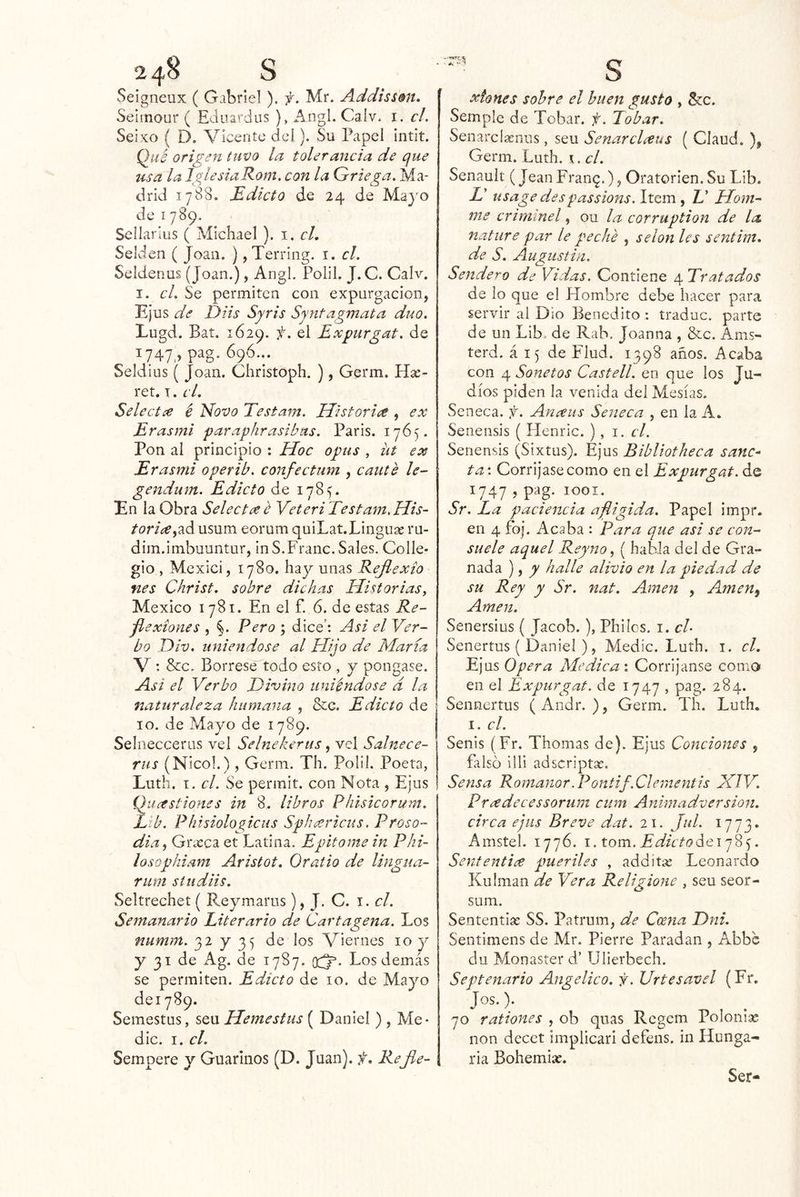 248 S
Seigneux ( Gabriel ). ℣. Mr. Addisson.
Seimour ( Eduardus ), Angl. Calv. 1. cl.
Seixo ( D. Vicente del ). Su Papel intit.
Qué origen tuvo la tolerancia de que
usa la Iglesia Rom. con la Griega. Ma-
drid 1788. Edicto de 24 de Mayo
de 1789.
Sellarius ( Michael ). 1. cl.
Selden ( Joan. ) , Terring. 1. cl.
Seldenus (Joan.), Angl. Polil. J. C. Calv.
1. cl. Se permiten con expurgacion,
Ejus de Diis Syris Syntagmata duo.
Lugd. Bat. 1629. ℣. el Expurgat. de
1747., pag. 696...
Seldius ( Joan. Christoph. ) , Germ. Hæ-
ret. 1. cl.
Selectæ é Novo Testam. Historiæ , ex
Erasmi paraphrasibus. Paris. 1765.
Pon al principio : Hoc opus , ut ex
Erasmi operib. confectum , cautè le-
gendum. Edicto de 1785.
En la Obra Selectæ è Veteri Testam. His-
toriæ, ad usum eorum qui Lat. Linguæ ru-
dim. imbuuntur, in S. Franc. Sales. Colle-
gio , Mexici, 1780. hay unas Reflexio
nes Christ. sobre dichas Historias,
Mexico 1781. En el f. 6. de estas Re-
flexiones , §. Pero ; dice: Asi el Ver-
bo Div. uniendose al Hijo de María
V : &c. Borrese todo esto , y pongase.
Asi el Verbo Divino uniéndose á la
naturaleza humana , &c. Edicto de
10. de Mayo de 1789.
Selneccerus vel Selnekerus, vel Salnece-
rus (Nicol.), Germ. Th. Polil. Poeta,
Luth. 1. cl. Se permit. con Nota , Ejus
Quæstiones in 8. libros Phisicorum.
Lib. Phisiologicus Sphæricus. Proso-
dia, Græca et Latina. Epitome in Phi-
losophiam Aristot. Oratio de lingua-
rum studiis.
Seltrechet ( Reymarus ), J. C. 1. cl.
Semanario Literario de Cartagena. Los
numm. 32 y 35 de los Viernes 10 y
y 31 de Ag. de 1787. ☞. Los demás
se permiten. Edicto de 10. de Mayo
de 1789.
Semestus, seu Hemestus ( Daniel ) , Me-
dic. 1. cl.
Sempere y Guarinos (D. Juan). ℣. Refle-
S
xîones sobre el buen gusto , &c.
Semple de Tobar. ℣. Tobar.
Senarclænus , seu Senarclæus ( Claud. ),
Germ. Luth. 1. cl.
Senault ( Jean Franç. ), Oratorien. Su Lib.
L' usage des passions. Item , L' Hom-
me criminel , ou la corruption de la
nature par le pechè , selon les sentim.
de S. Augustin.
Sendero de Vidas. Contiene 4 Tratados
de lo que el Hombre debe hacer para
servir al Dio Benedito : traduc. parte
de un Lib. de Rab. Joanna , &c. Ams-
terd. á 15 de Flud. 1398 años. Acaba
con 4 Sonetos Castell. en que los Ju-
díos piden la venida del Mesías.
Seneca. ℣. Anæus Seneca , en la A.
Senensis ( Henric. ) , 1. cl.
Senensis (Sixtus). Ejus Bibliotheca sanc-
ta : Corrijase como en el Expurgat. de
1747 , pag. 1001.
Sr. La paciencia afligida. Papel impr.
en 4 foj. Acaba : Para que asi se con-
suele aquel Reyno, ( habla del de Gra-
nada ) , y halle alivio en la piedad de
su Rey y Sr. nat. Amen , Amen,
Amen.
Senersius ( Jacob. ), Philos. 1. cl.
Senertus ( Daniel ), Medic. Luth. 1. cl.
Ejus Opera Medica : Corrijanse como
en el Expurgat. de 1747 , pag. 284.
Sennertus ( Andr. ), Germ. Th. Luth.
1. cl.
Senis (Fr. Thomas de). Ejus Conciones ,
falsò illi adscriptæ.
Sensa Romanor. Pontif. Clementis XIV.
Prædecessorum cum Animadversion.
circa ejus Breve dat. 21. Jul. 1773.
Amstel. 1776. 1. tom. Edicto de 1785.
Sententiæ pueriles , additæ Leonardo
Kulman de Vera Religione , seu seor-
sum.
Sententiæ SS. Patrum, de Cœna Dni.
Sentimens de Mr. Pierre Paradan , Abbè
du Monaster d' Ulierbech.
Septenario Angelico. ℣. Urtesavel (Fr.
Jos. ).
70 rationes , ob quas Regem Poloniæ
non decet implicari defens. in Hunga-
ria Bohemiæ.
Ser-